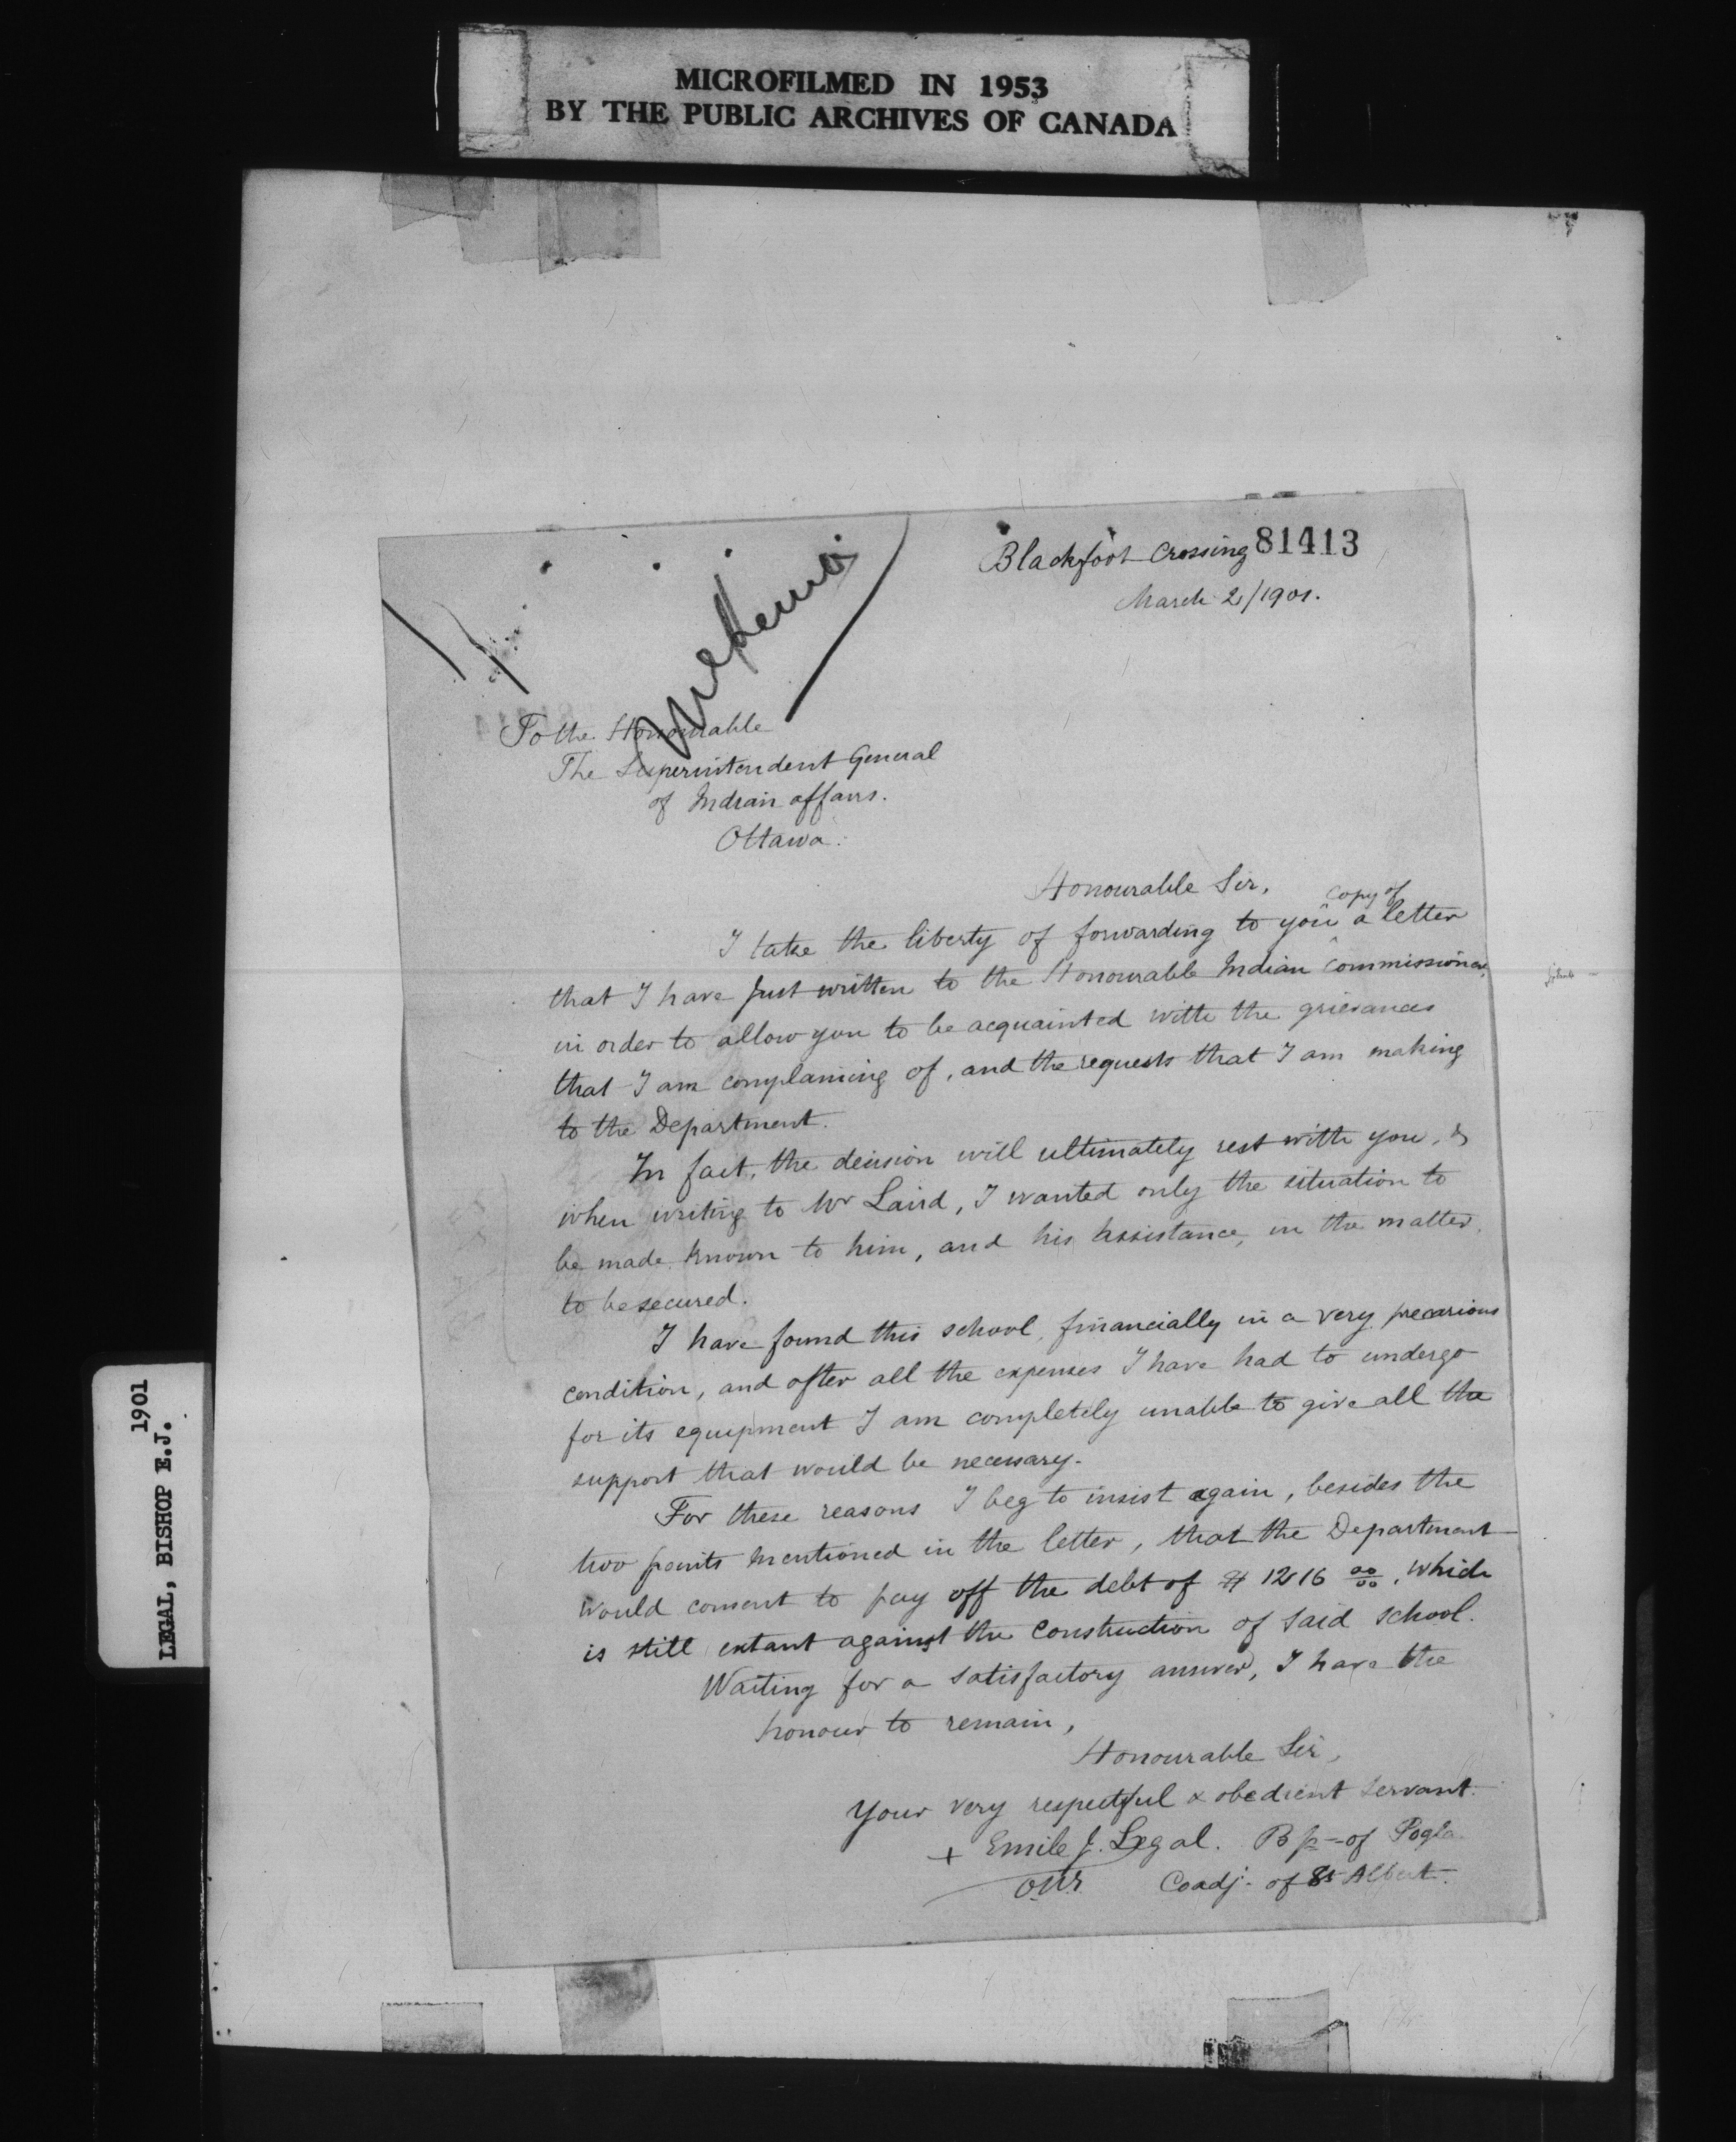 MICROFILMED IN 1953
BY THE PUBLIC ARCHIVES OF CANADA
Blackfoot Crossing 81413
March 2/1901.
To the Honourable
The Superintendent General
of Indian affairs.
Ottawa.
Honourable Sir,
copy of
I take the liberty of forwarding to you a letter
that I have just written to the Honourable Indian Commissioner,
in order to allow you to be acquainted with the grievances
that I am complaining of, and the requests that I am making
to the Department.
In fact, the decision will ultimately rest with you, &
when writing to Mr Laird, I wanted only the situation to
be made known to him, and his assistance, in the matter,
to be secured.
I have found this school, financially in a very precarious
condition, and after all the expenses I have had to undergo
for its equipment I am completely unable to give all the
support that would be necessary.
For these reasons I beg to insist again, besides the
two points mentioned in the letter, that the Department
would consent to pay off the debt of $ 1216 00/00, which
is still extant against the construction of said school.
Waiting for a satisfactory answer, I have the
honour to remain,
Honourable Sir,
Your very respectful & obedient servant.
+ Emile J. Legal. Bp of Pogla
O.M.I. Coadj. of St Albert.
1901
LEGAL, BISHOP E.J.